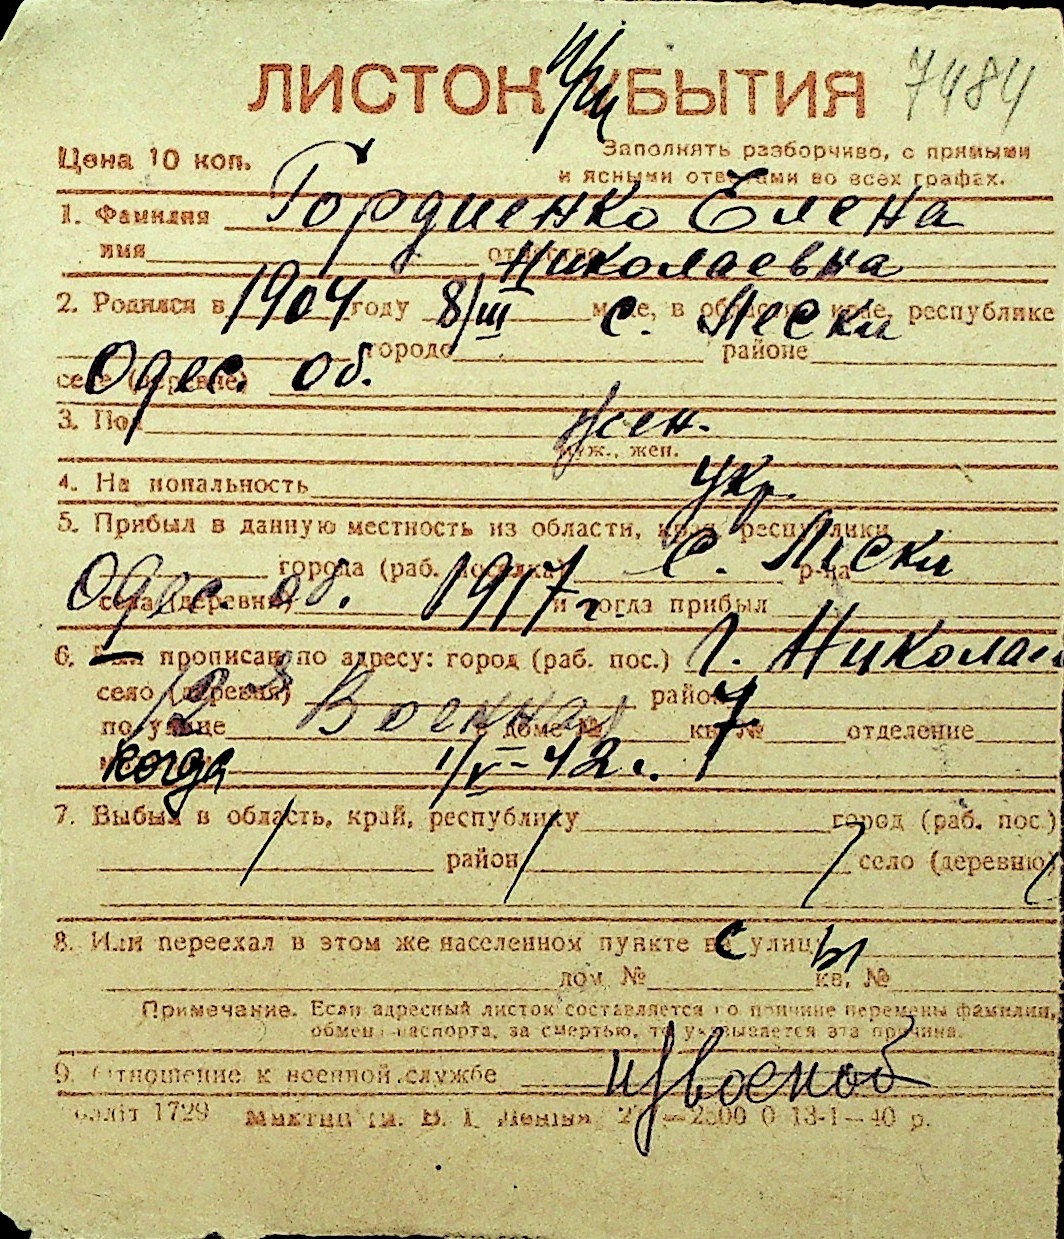 ЛИСТОК УБЫТИЯ 7484
Цена 10 коп.
Заполнять разборчиво, с прямыми
и ясными ответами во всех графах.
1. Фамилия Гордиенко Елена
имя отчество Николаевна
2. Родился в 1904 году 8/III м-це, в области, крае, республике с. Пески
городе районе
селе (деревне) Одес. об.
3. Пол жен.
муж., жен.
4. Национальность укр.
5. Прибыл в данную местность из области, края, республики
города (раб. поселка) с. Пески р-на
Одес. об. села (деревни) 1917 г. и когда прибыл
6. Был прописан по адресу: город (раб. пос.) г. Николаев
село (деревня) район
по улице 12 я Военная в доме № 7 кв. № отделение
когда 1/V-42 г.
7. Выбыл в область, край, республику город (раб. пос.)
район село (деревню)
8. Или переехал в этом же населенном пункте на улицу
дом № кв. №
Примечание. Если адресный листок составляется по причине перемены фамилии,
обмена паспорта, за смертью, то указывается эта причина.
9. Отношение к военной службе
1729 В. І. Леніна 2500 0 13-1—40 р.